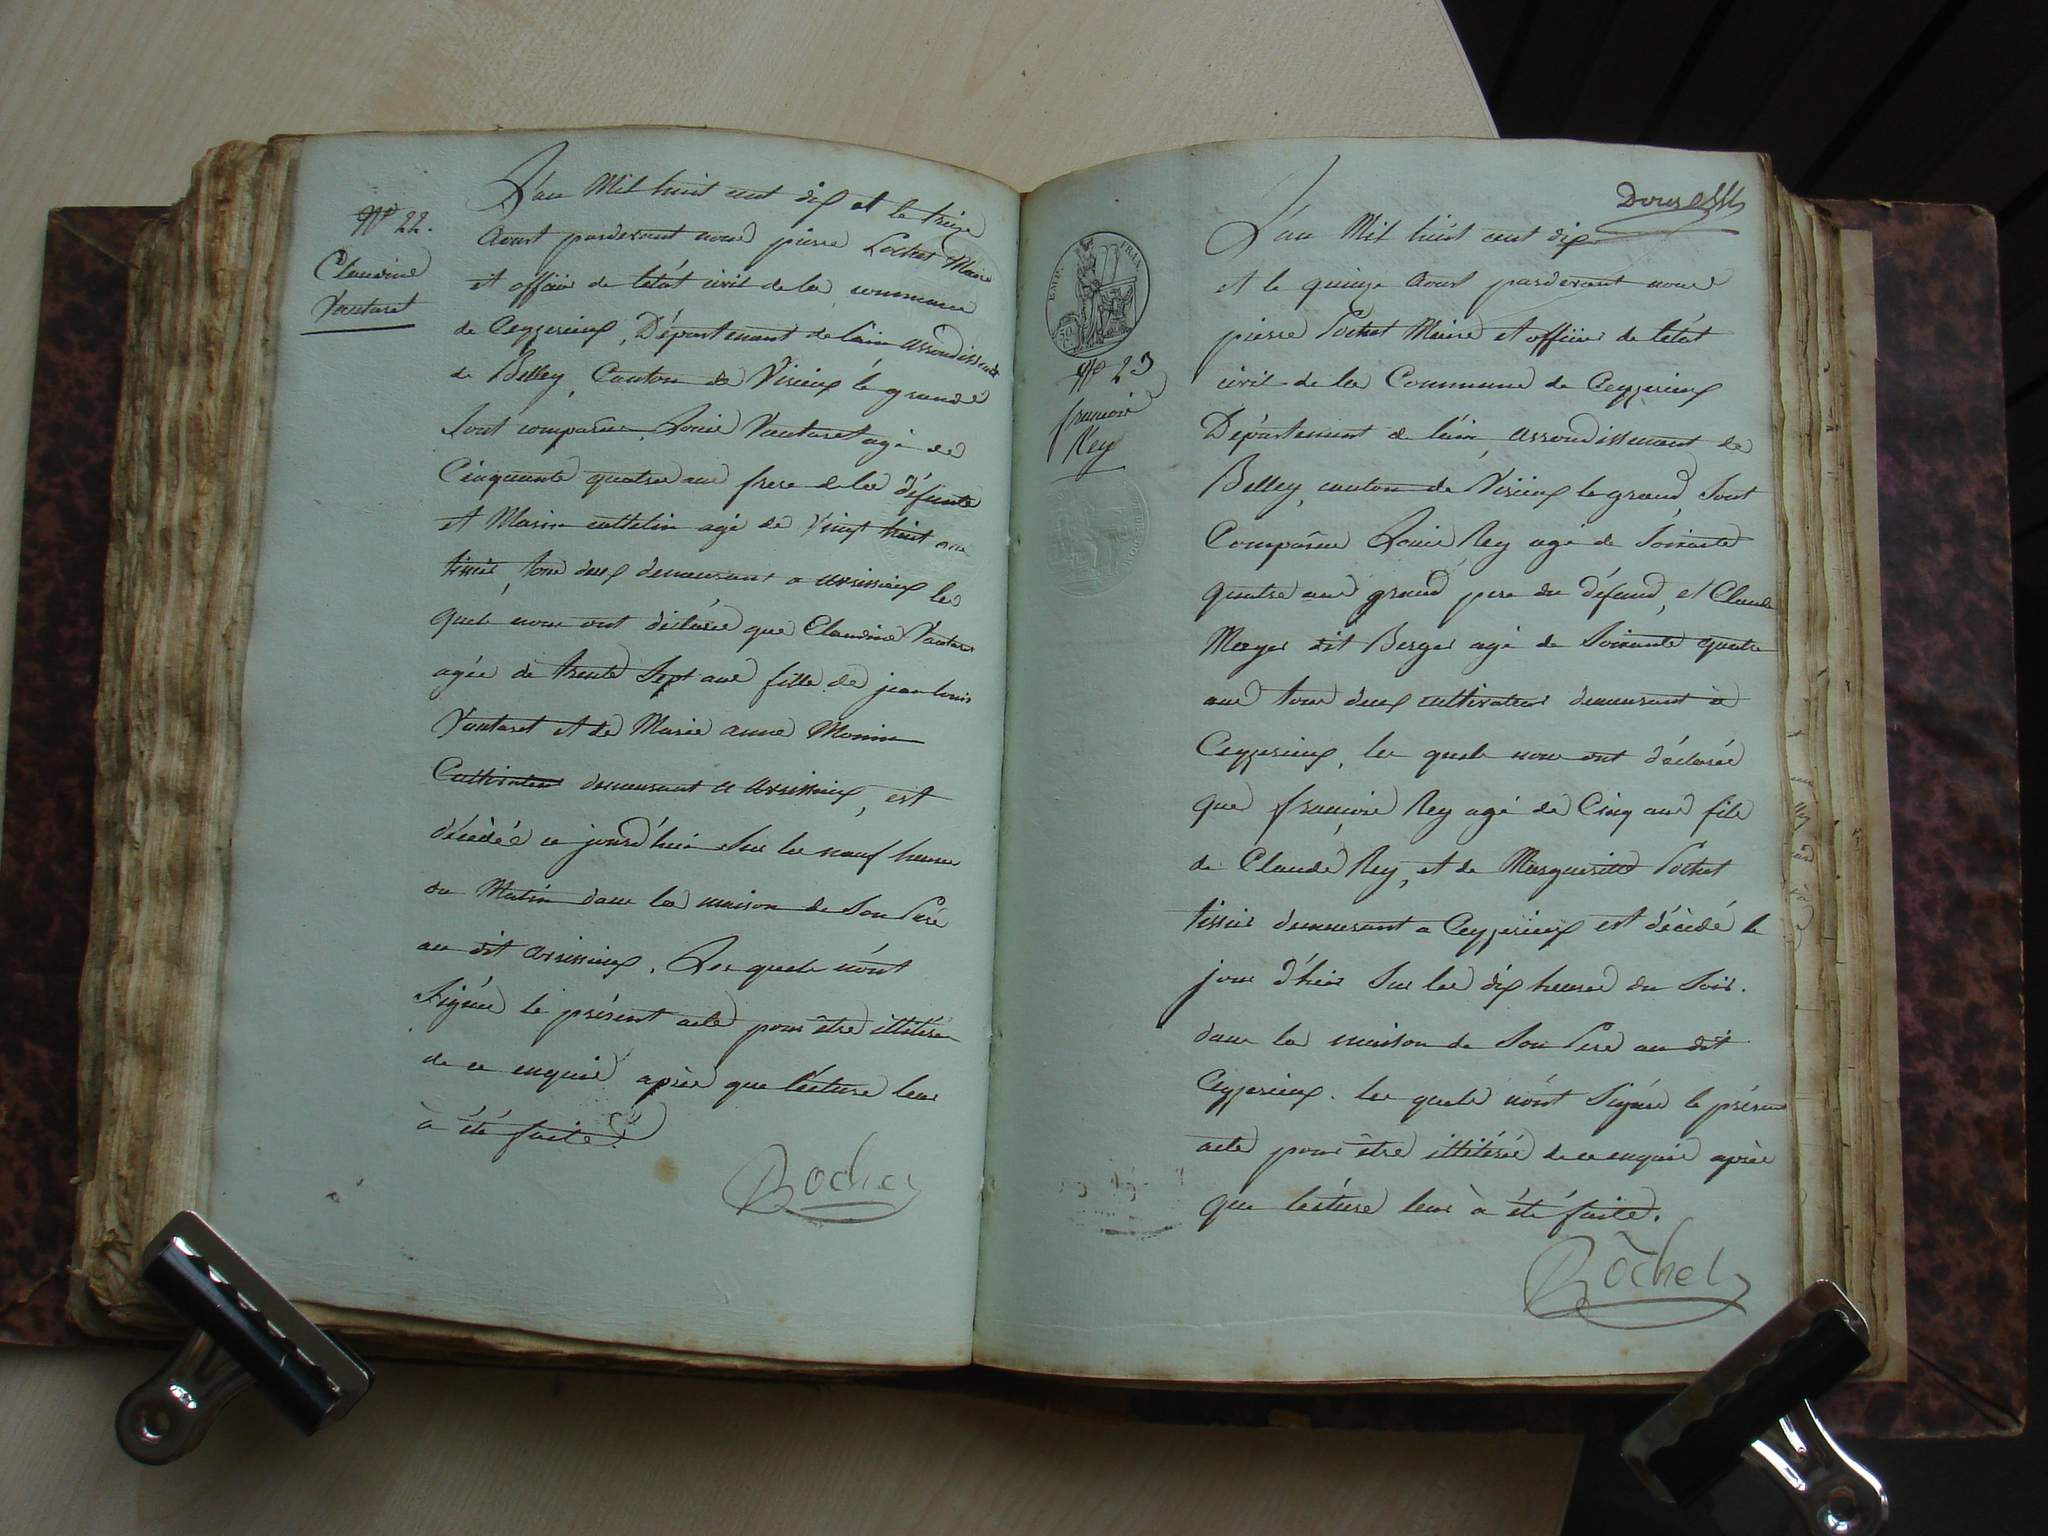 N° 22.
Claudine
Vautaret
L'an Mil huit cent dix et le treize
Aoust pardevant nous pierre Pochet Maire
et officier de l'état civil de la commune
de Ceyzerieux, Département de l'ain arrondissement
de Belley, Canton de Virieux le grand
Sont comparus Louis Vautaret agé de
Cinquante quatre ans frere de la défunte
et Marin cattelin agé de vingt huit ans
tissier, tous deux demeurant a avrissieux les
quels nous ont déclaré que Claudine Vautaret
agée de trente Sept ans fille de jean louis
Vautaret et de Marie anne Monin
demeurant a avrissieux, est
décédée ce jourd'hui Sur les neuf heures
du Matin dans la maison de Son Pere
au dit avrissieux. Les quels n'ont
Signés le présent acte pour être illitérés
de ce enquis après que lécture leur
à été faite.
Pochet
N° 23
francois
Rey
EMP. FRAN.
50
L'an Mil huit cent dix
et le quinze Aoust pardevant nous
pierre Pochet Maire et officier de l'état
civil de la Commune de Ceyzerieux
Département de l'ain, arrondissement de
Belley, canton de Virieux le grand, Sont
Comparus Louis Rey agé de Soixante
quatre ans grand pere du défund, et Claude
Meyer dit Berger agé de Soixante quatre
ans tous deux cultivateurs demeurant à
Ceyzerieux, les quels nous ont déclaré
que francois Rey agé de Cinq ans fils
de Claude Rey, et de Margueritte Pochet
tissier demeurant a Ceyzerieux est décédé le
jour d'hier Sur les dix heures du Soir.
dans la maison de Son Pere au dit
Ceyzerieux. les quels n'ont Signés le présent
acte pour être illitérés de ce enquis après
que lécture leur à été faite.
Pochet